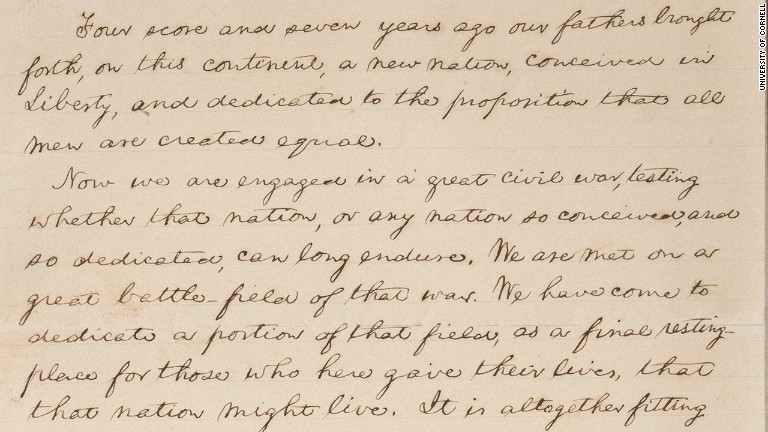 Four score and seven years ago our fathers brought
forth, on this continent, a new nation, conceived in
Liberty, and dedicated to the proposition that all
men are created equal.
Now we are engaged in a great civil war, testing
whether that nation, or any nation so conceived, and
so dedicated, can long endure. We are met on a
great battle-field of that war. We have come to
dedicate a portion of that field, as a final resting-
place for those who here gave their lives, that
that nation might live. It is altogether fitting
UNIVERSITY OF CORNELL